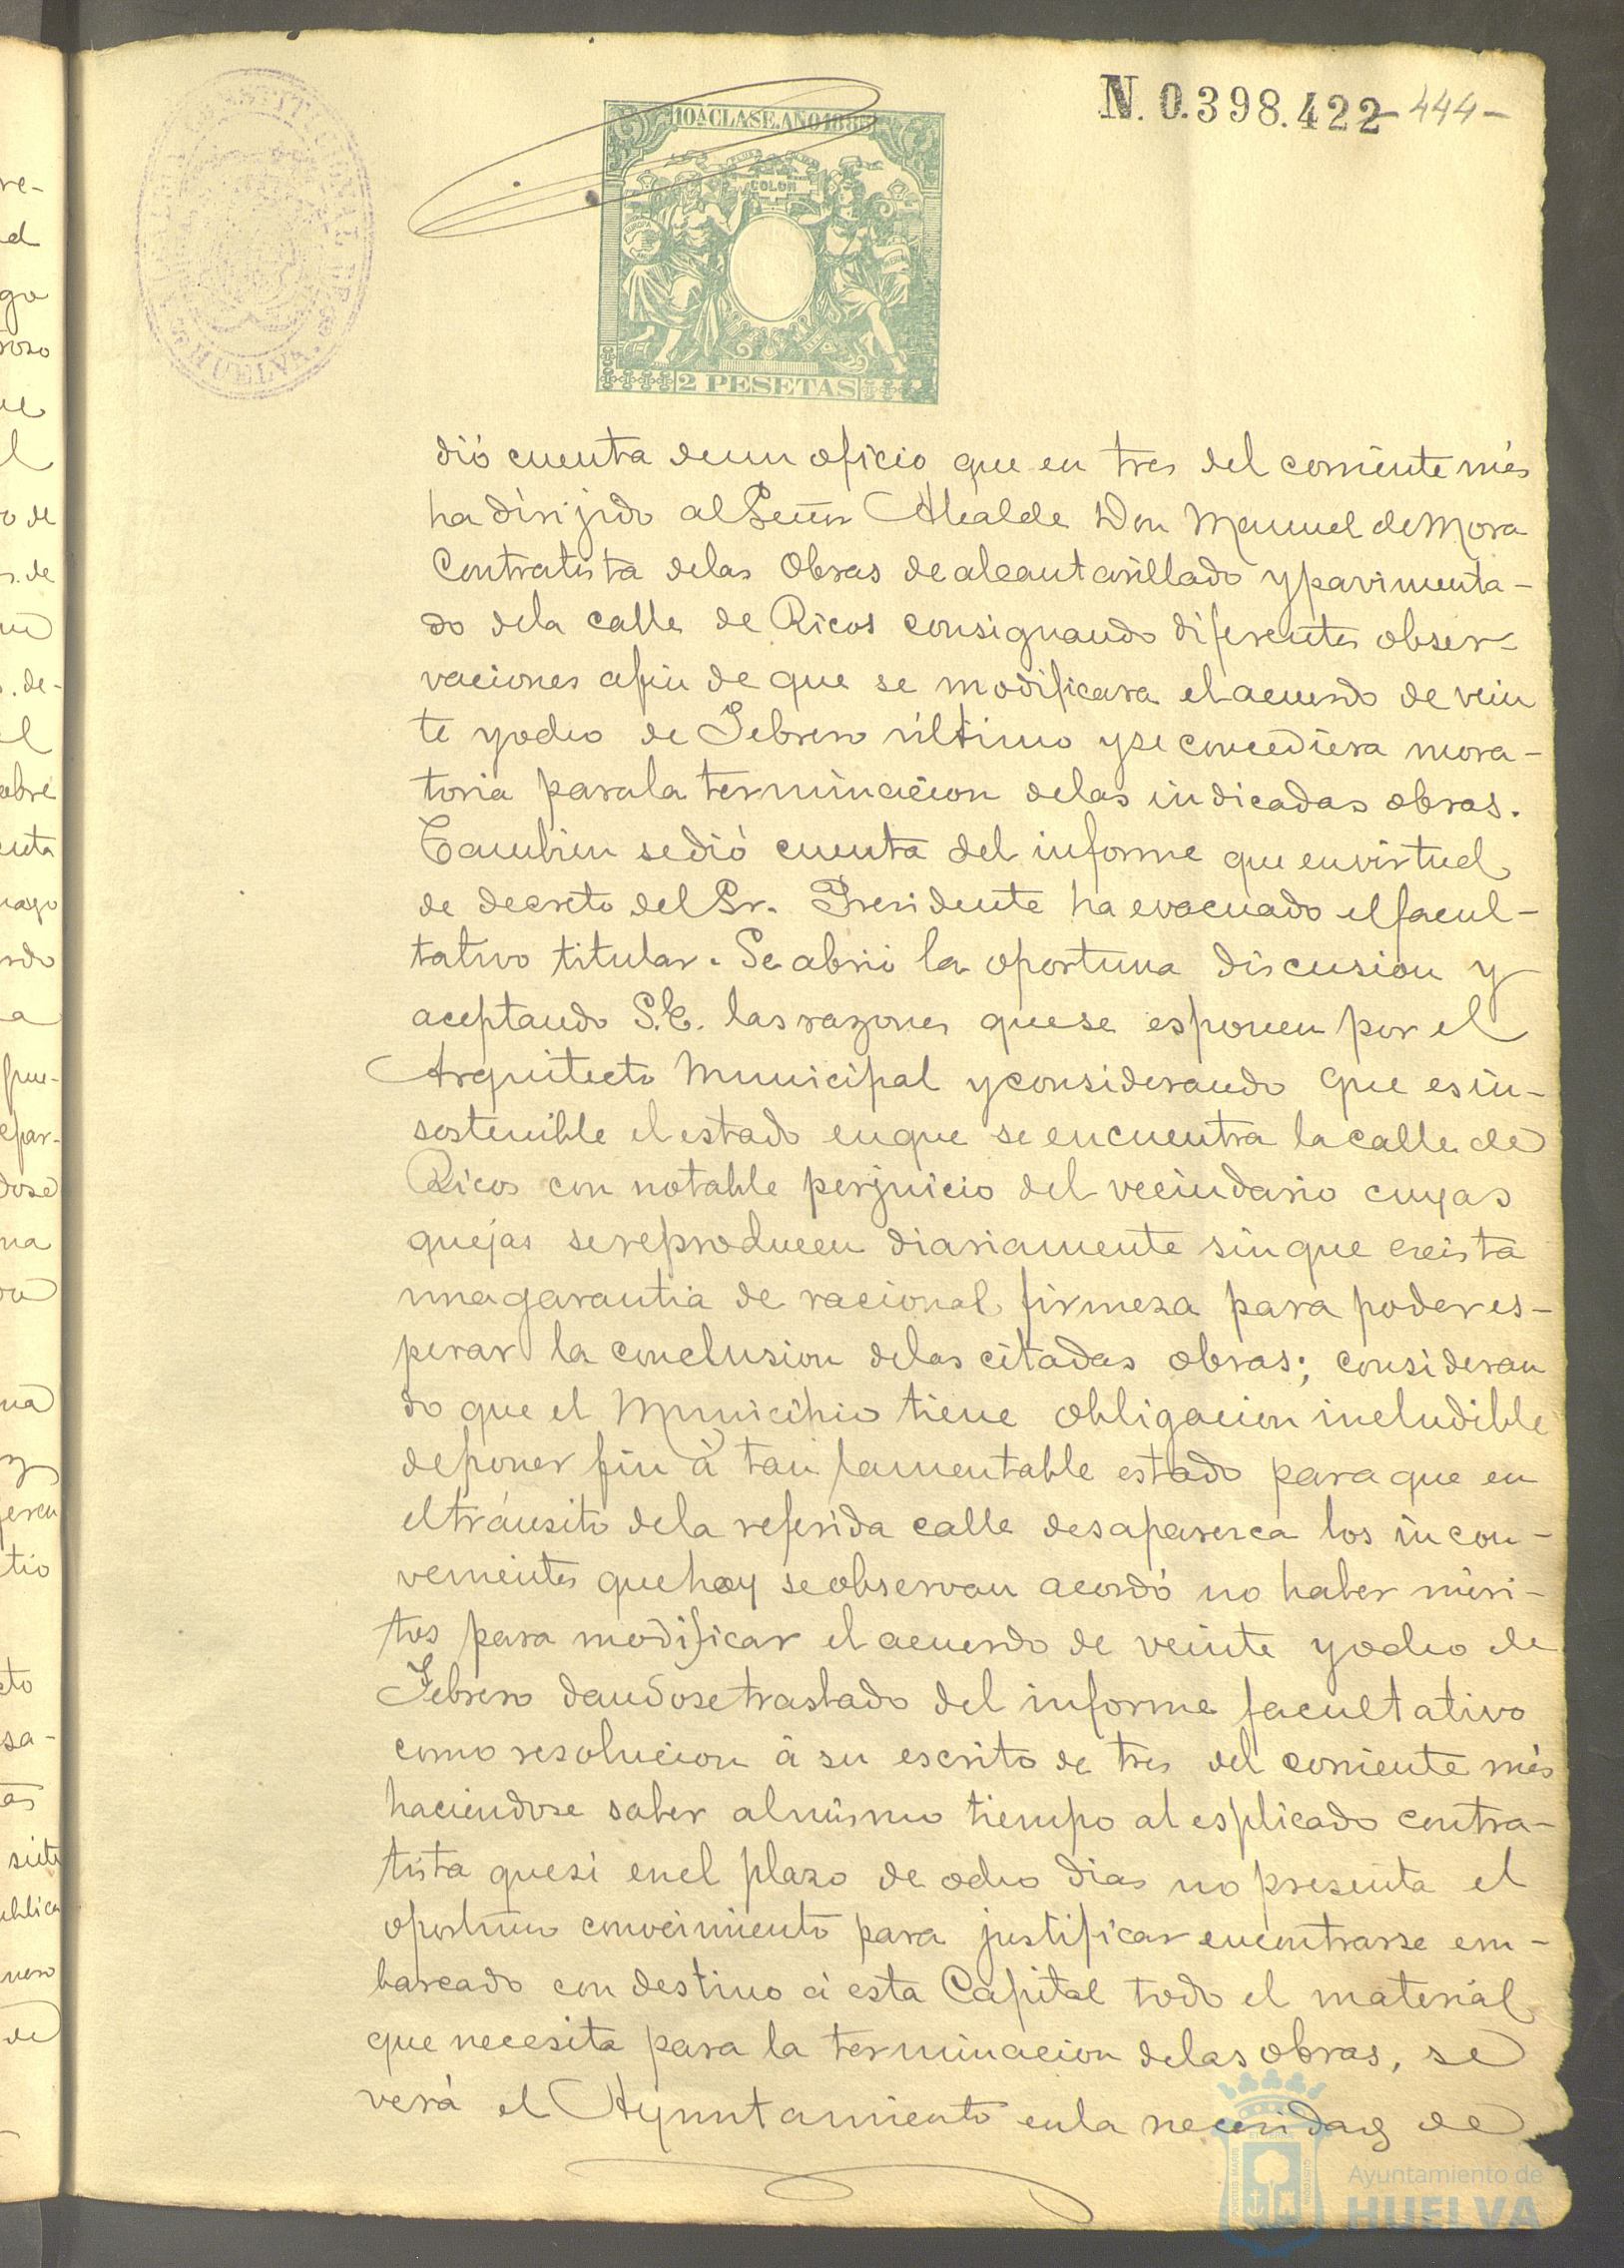 N. 0.398.422 - 444 -
10ª CLASE. AÑO 188
COLON
2 PESETAS
HUELVA
dió cuenta deun oficio que en tres del corriente més
ha dirijido al Señor Alcalde Don Manuel de Mora
Contratista delas Obras de alcantarillado y pavimenta-
do dela calle de Ricos consignando diferentes obser-
vaciones afin de que se modificara el acuerdo de vein
te yocho de Febrero último yse concediera mora-
toria parala terminacion delas indicadas obras.
Tambien sedió cuenta del informe que envirtud
de decreto del Sr. Presidente ha evacuado el facul-
tativo titular. Se abrió la oportuna discusion y
aceptando S.E. lasrazones quese esponen por el
Arquitecto Municipal yconsiderando que es in-
sostenible el estado enque se encuentra la calle de
Ricos con notable perjuicio del vecindario cuyas
quejas sereproducen diariamente sinque exista
unagarantia de racional firmeza para poder es-
perar la conclusion delas citadas obras; consideran
do que el Municipio tiene obligacion ineludible
deponer fin á tan lamentable estado para que en
eltránsito dela referida calle desaparezca los incon-
venientes quehoy seobservan acordó no haber méri-
tos para modificar el acuerdo de veinte yocho de
Febrero dandosetraslado del informe facultativo
como resolucion á su escrito de tres del corriente més
haciendose saber almismo tiempo al esplicado contra-
tista quesi enel plazo de ocho dias no presenta el
oportuno conocimiento para justificar encontrarse em-
barcado con destino á esta Capital todo el material
que necesita para la terminacion delas obras, se
verá el Ayuntamiento enla necesidad de
Ayuntamiento de
HUELVA